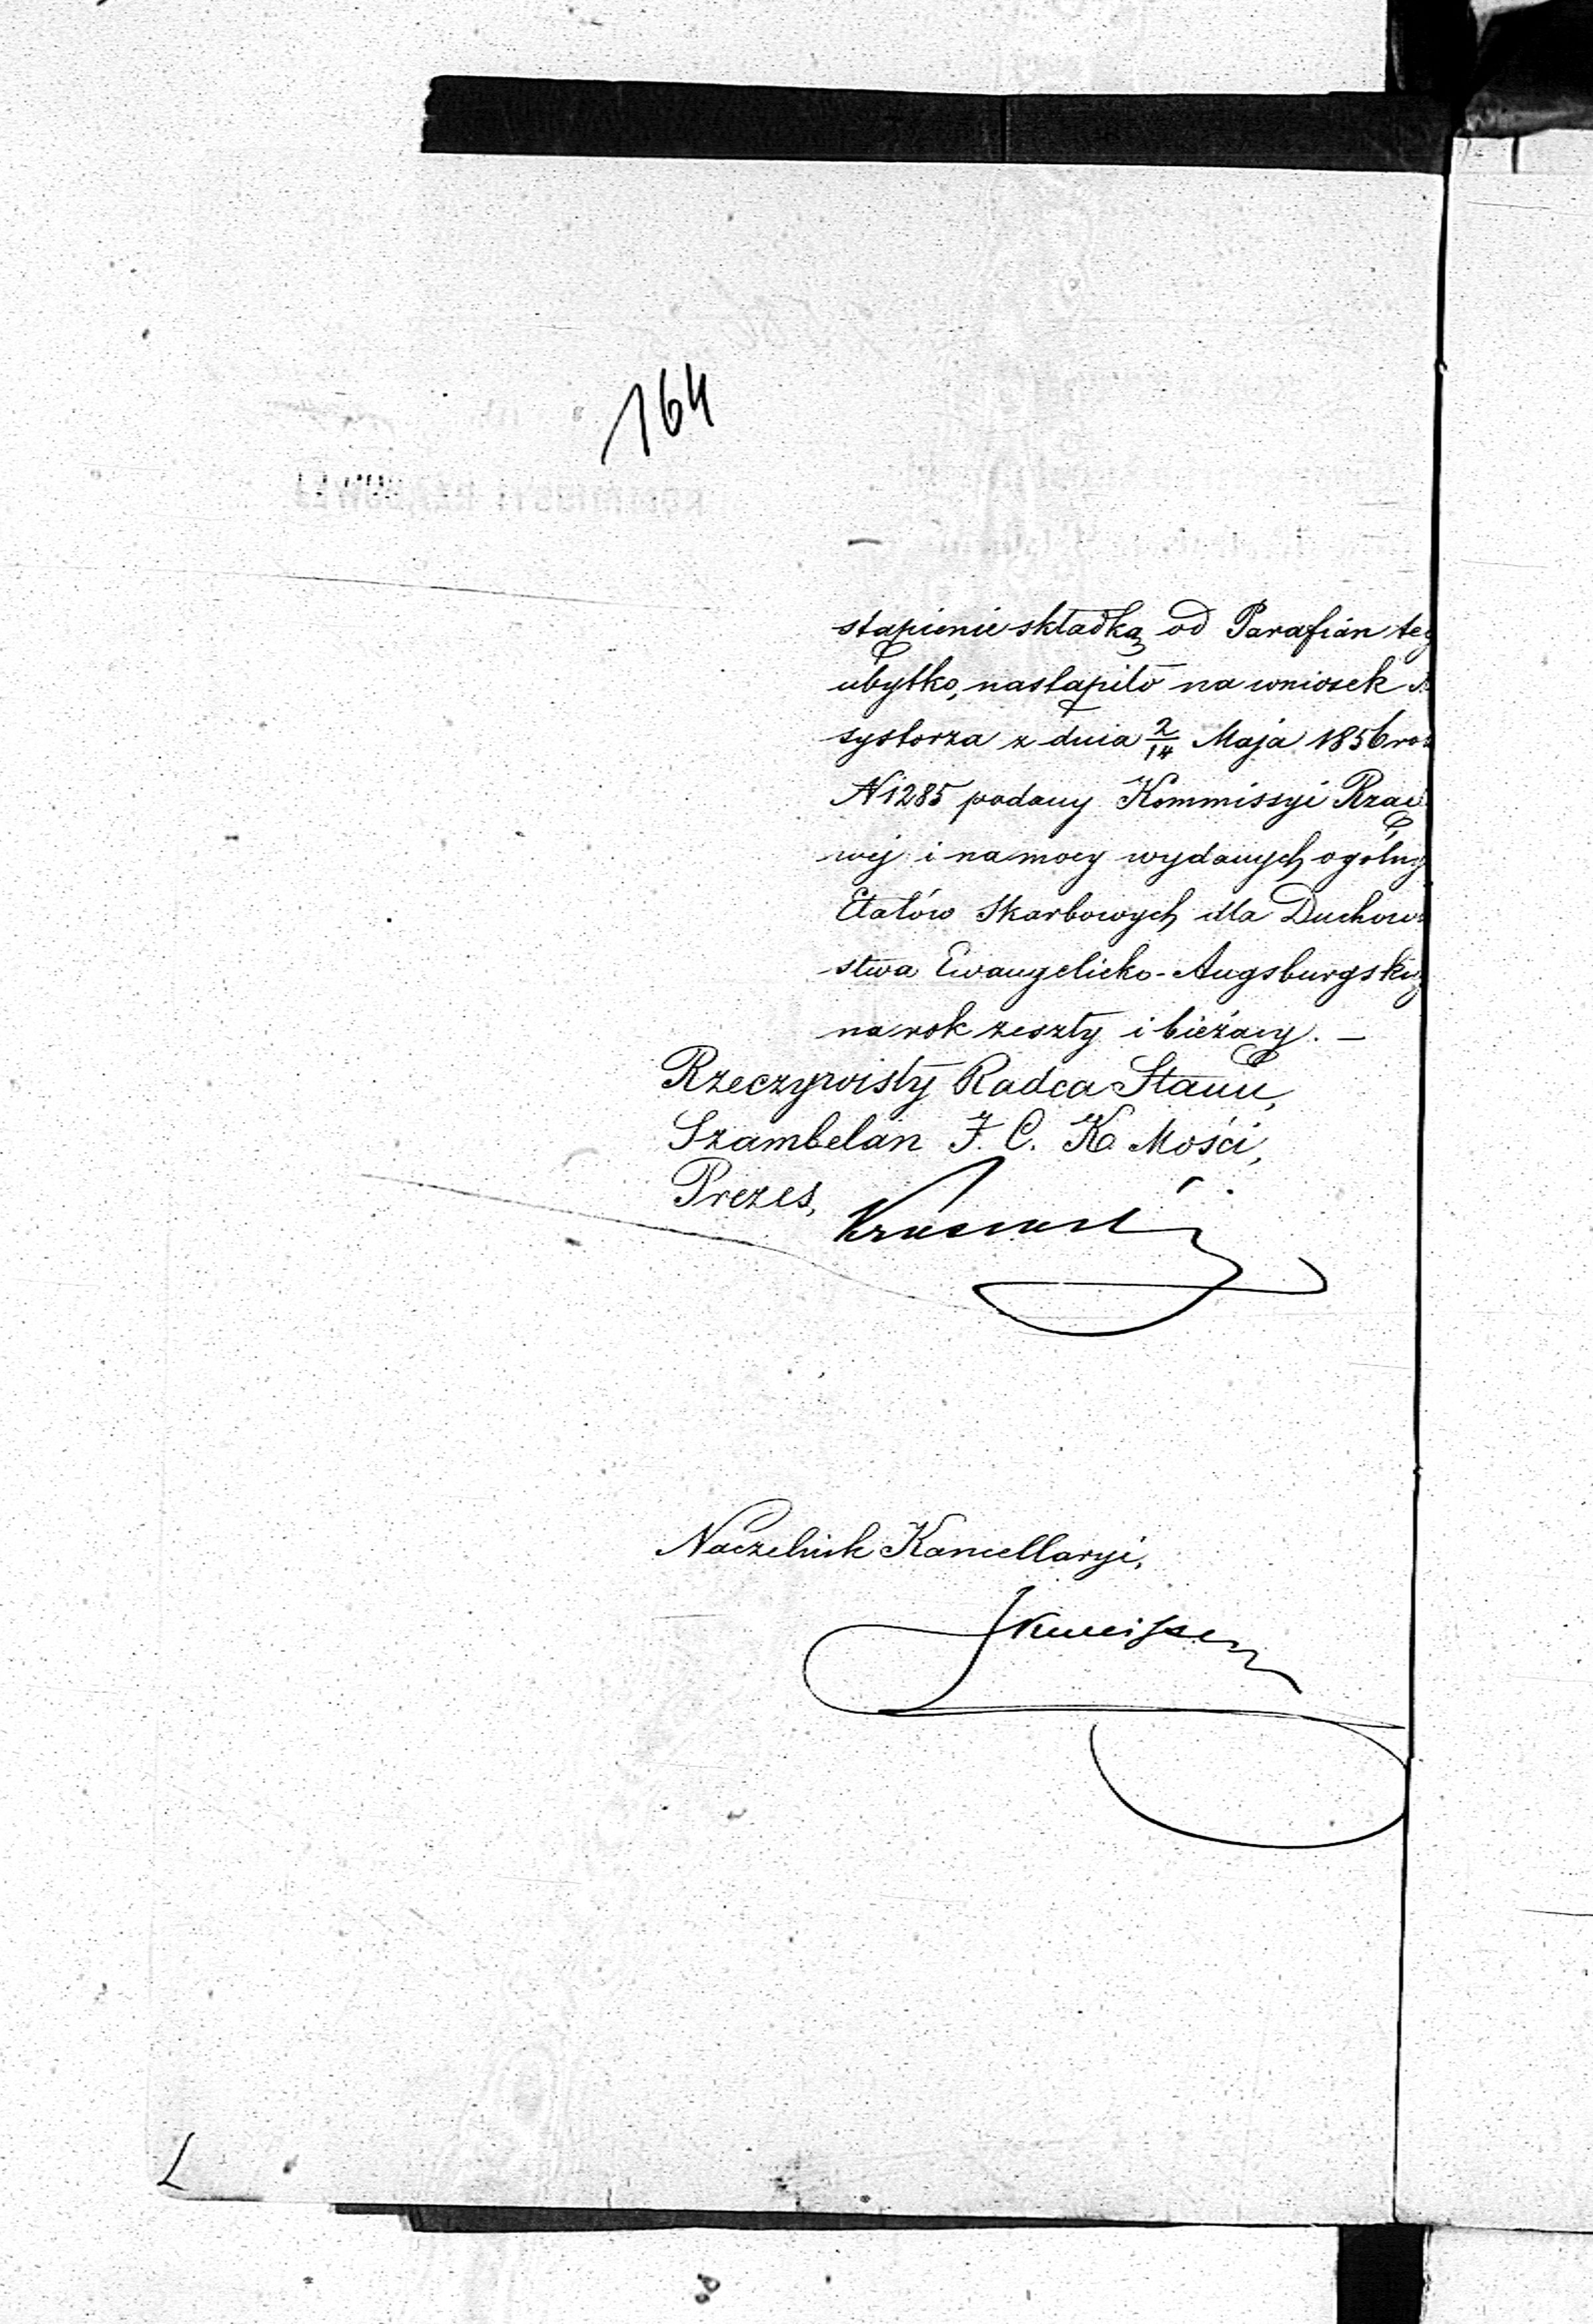 164
stąpienie składką od Parafian teg
ubytko, nastąpiło na wniosek
systorza z dnia 2/14 Maja 1856 ro
N 1285 podany Kommissyi Rząd
wej i na mocy wydanych ogólny
Etatów Skarbowych dla Duchow
stwa Ewangelicko-Augsburgskieg
na rok zeszły i bieżący. —
Rzeczywisty Radca Stanu,
Szambelan J. C. K. Mości,
Prezes,
Naczelnik Kancellaryi,